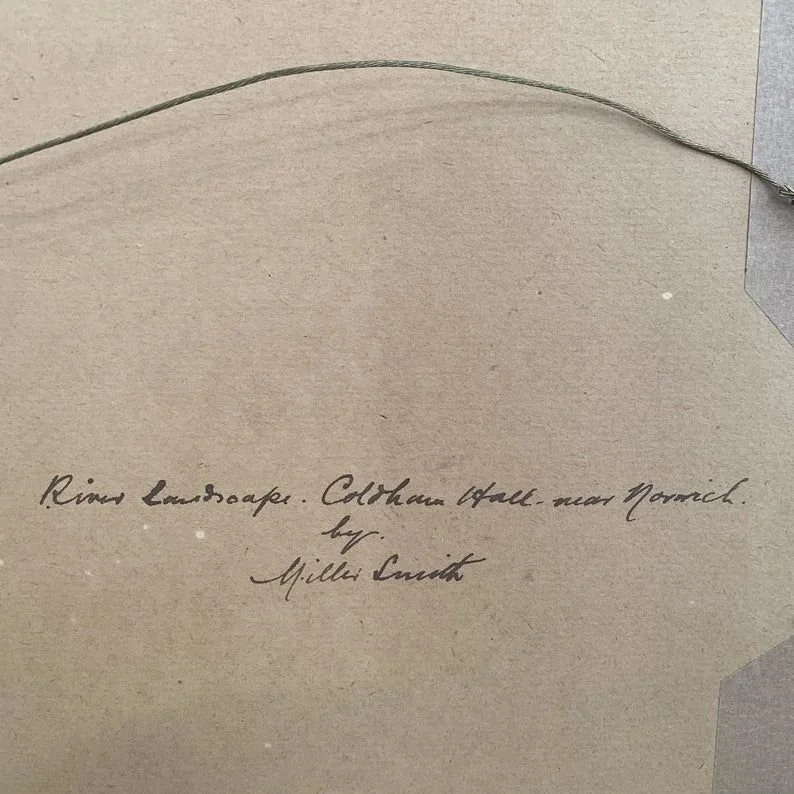 River Landscape. Coldham Hall. near Norwich.
by.
Miller Smith